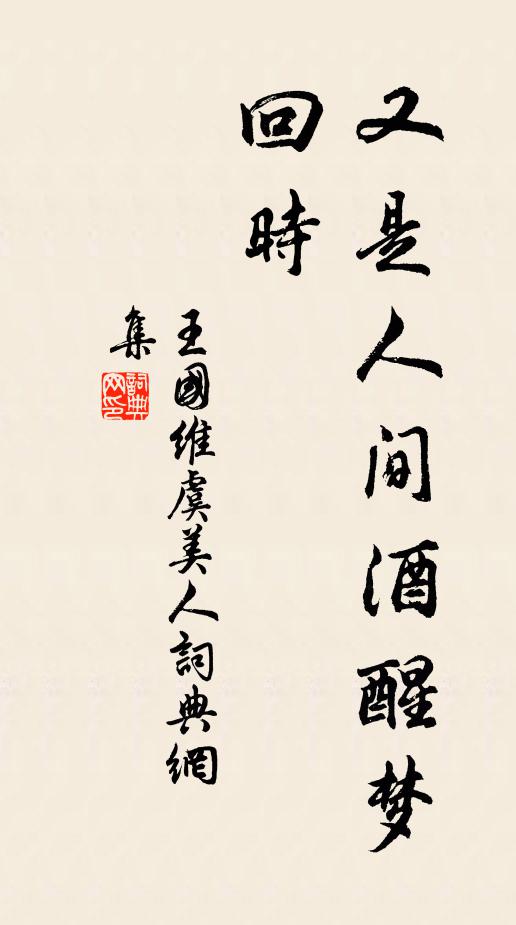 又是人间酒醒梦
回時
王國維虞美人詞典網
集
詞典網印